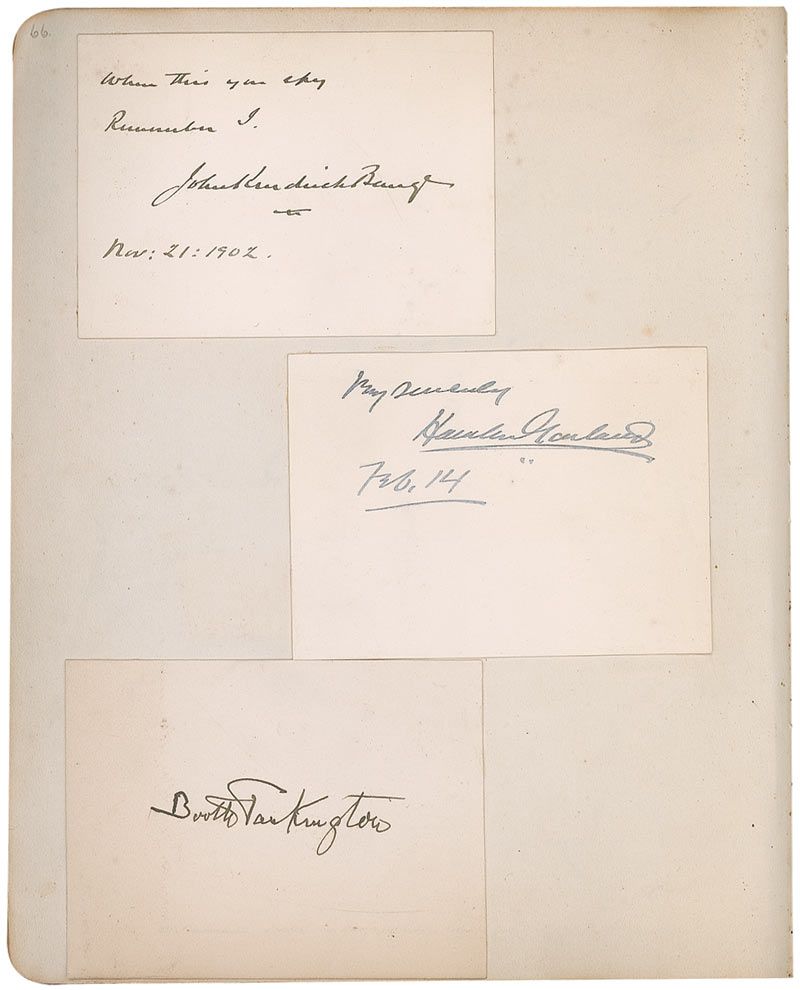 66.
When this you spy
Remember I.
John Kendrick Bangs
Nov: 21: 1902.
Very sincerely
Hamlin Garland
Feb. 14
Booth Tarkington